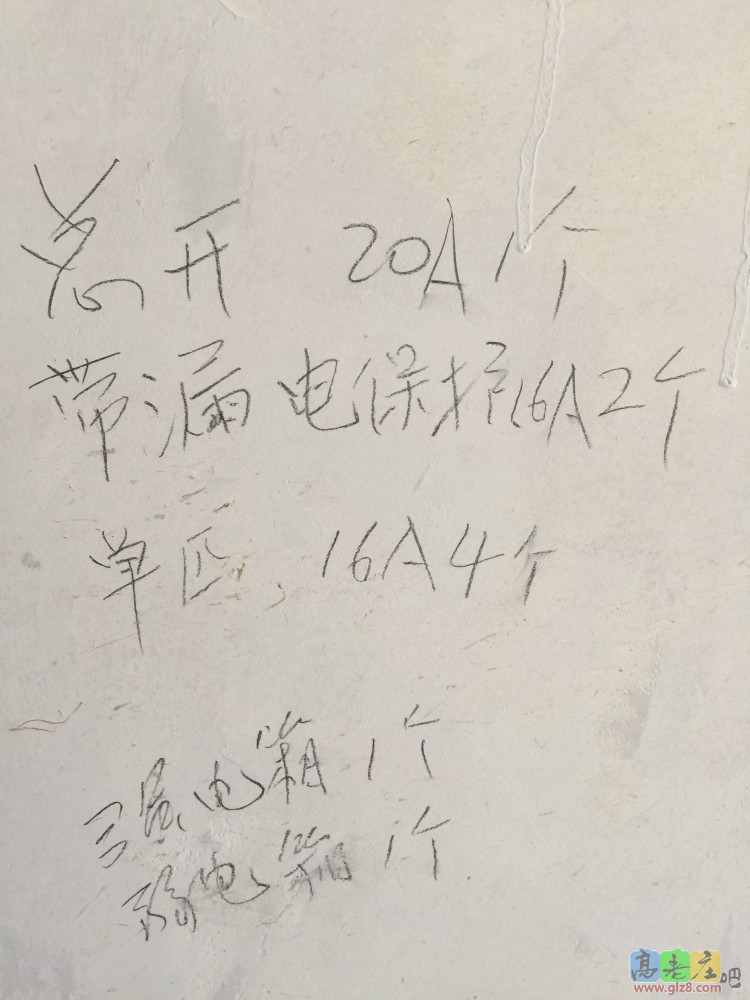 总开 20A 1个
带漏电保护16A2个
单匹 16A4个
强电箱 1个
弱电箱 1个
高老庄吧
www.glz8.com